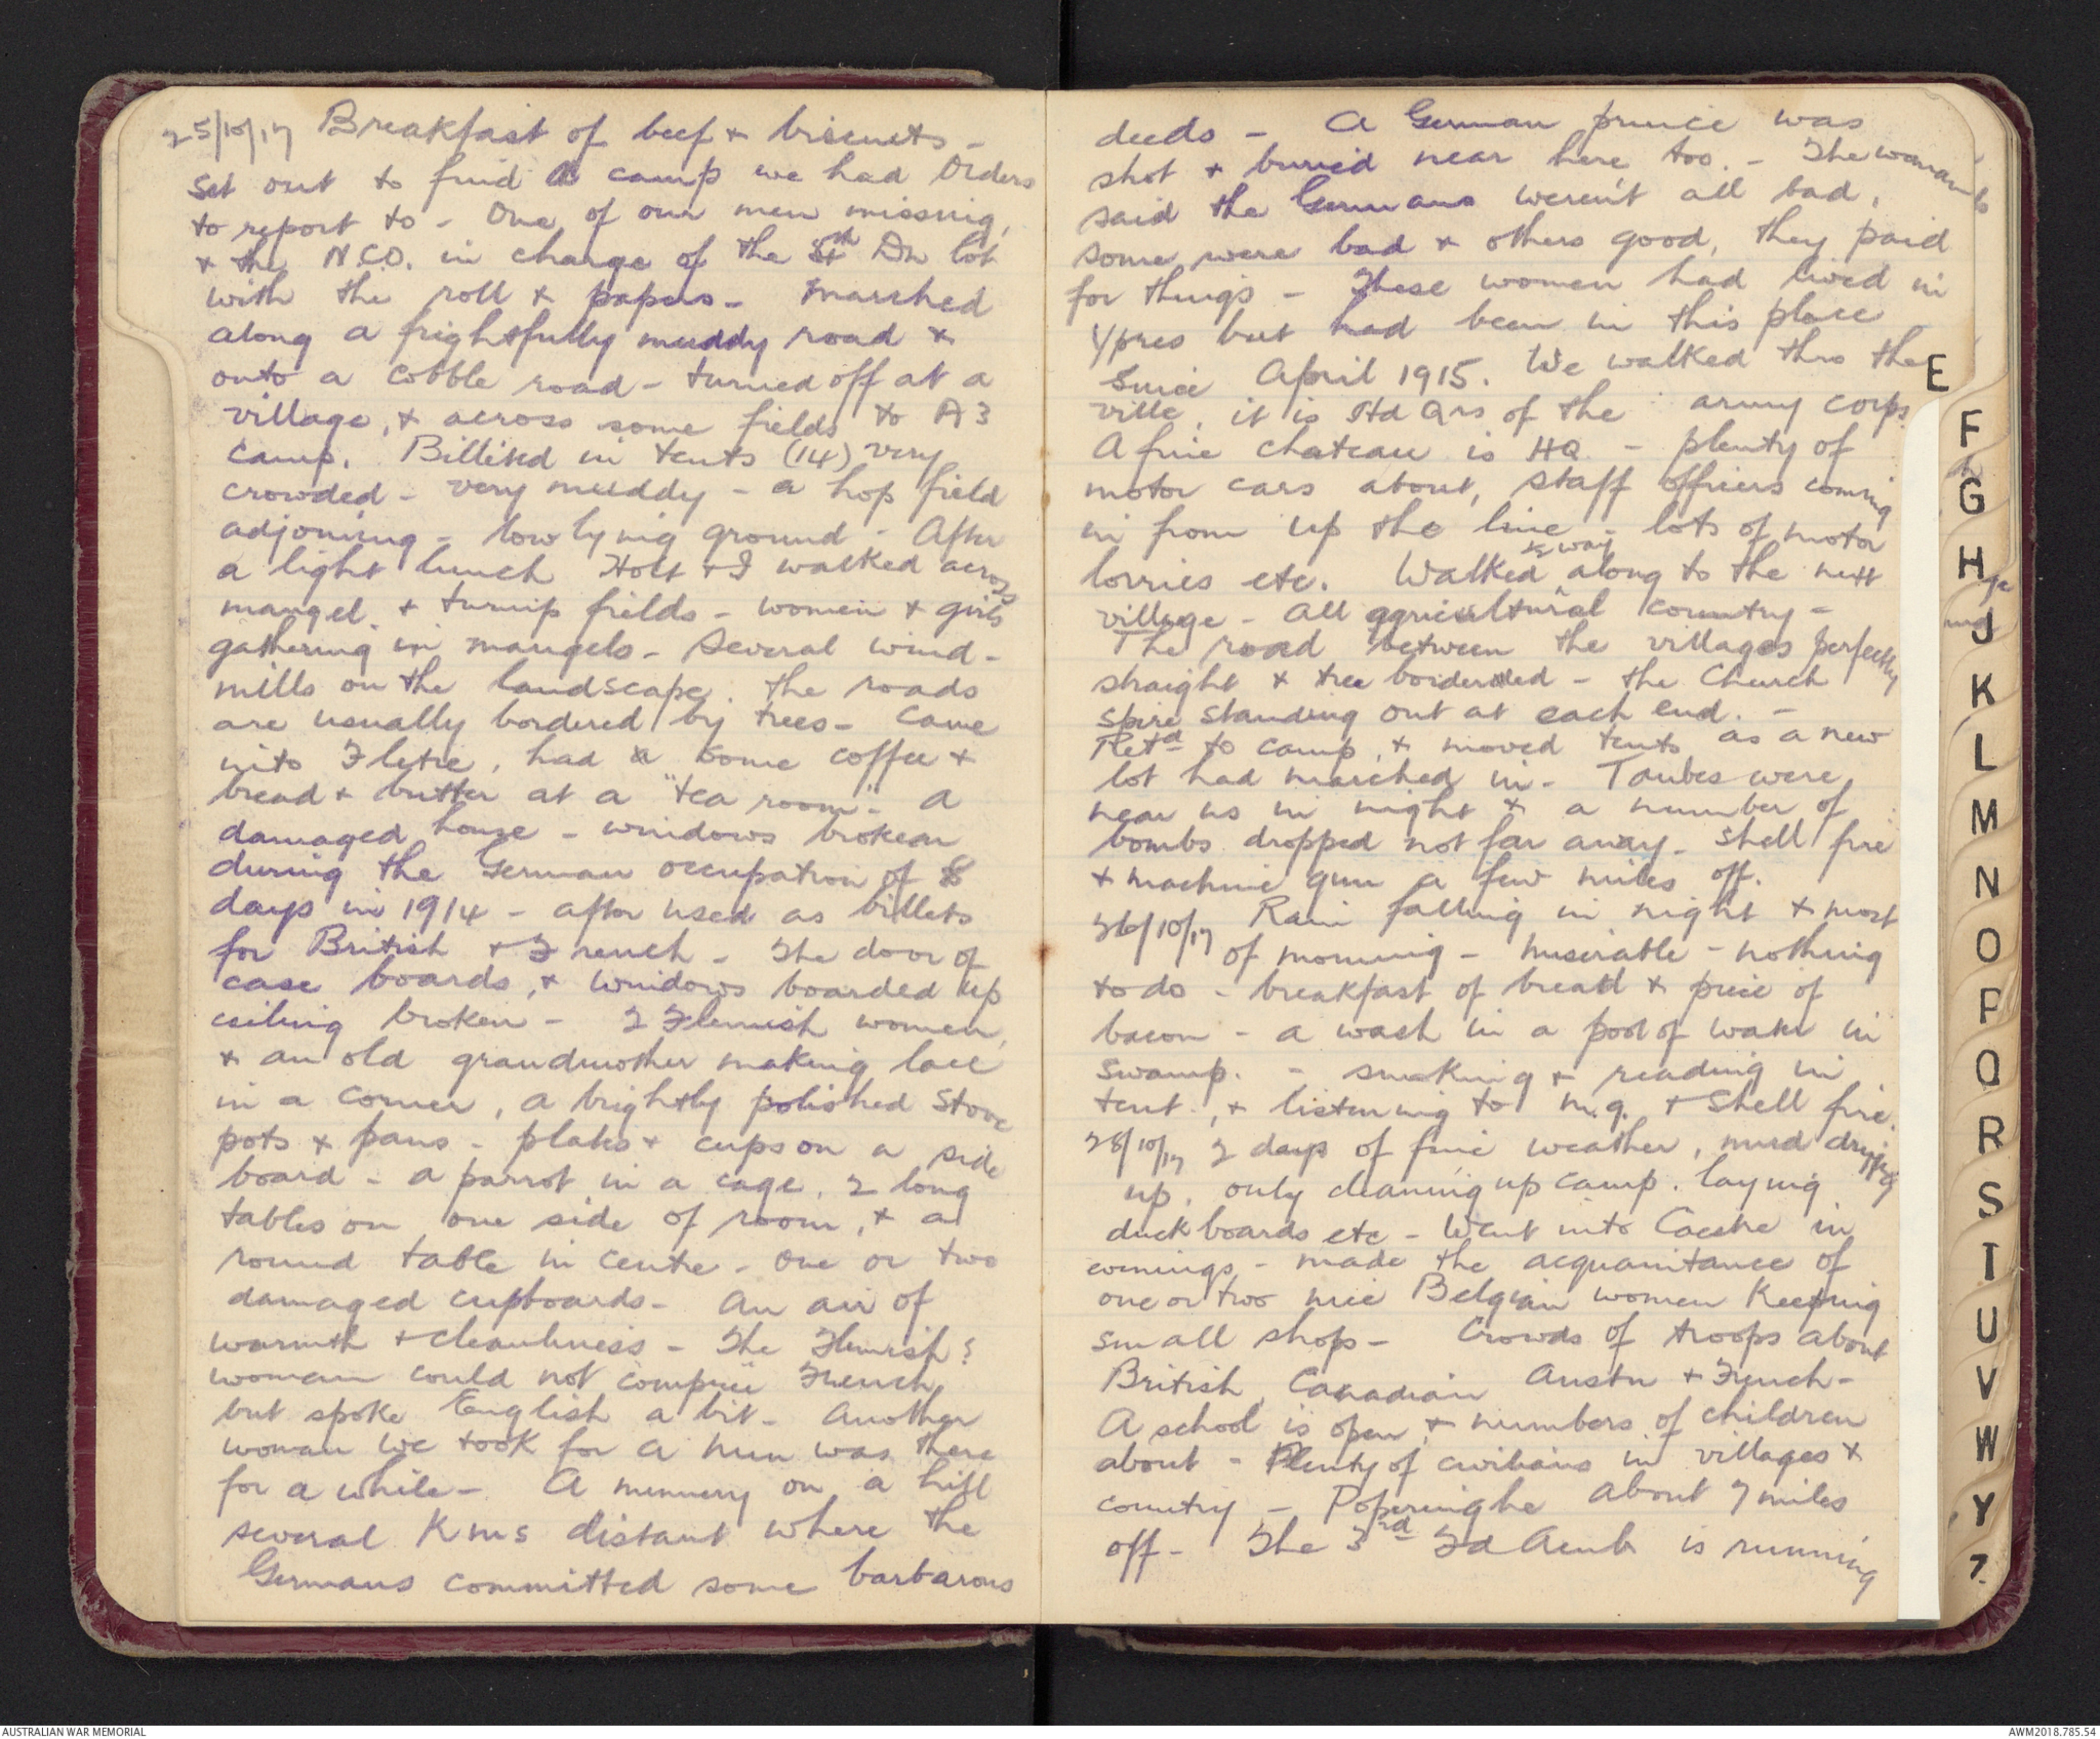 25/10/17 Breakfast of beef + biscuits -
Set out to find a camp we had Orders
to report to - One of our men missing,
+ the N.C.O. in charge of the 5th Dn lot
with the roll + papers - Marched
along a frightfully muddy road +
onto a cobble road - turned off at a
village, + across some fields to A3
Camp. Billited in tents (14) very
crowded - very muddy - a hop field
adjoining - low lying ground - After
a light lunch Holt + I walked across
mangel + turnip fields - women + girls
gathering in mangels - Several wind-
mills on the landscape. The roads
are usually bordered by trees - Came
into Fletre, had some coffee +
bread + butter at a "tea room" - a
damaged house - windows broken
during the German occupation of 8
days in 1914 - after used as billets
for British + French - The door of
case boards, + windows boarded up
ceiling broken - 2 Flemish women,
+ an old grandmother making lace
in a corner, a brightly polished stove
pots + pans - plates + cups on a side
board - a parrot in a cage, 2 long
tables on one side of room, + a
round table in centre - One or two
damaged cupboards - An air of
warmth + cleanliness - The Flemish?
woman could not compree French
but spoke English a bit - Another
woman we took for a nun was there
for a while - A nunnery on a hill
several Kms distant where the
Germans committed some barbarous
deeds - A German prince was
shot + buried near here too. - The woman
said the Germans weren't all bad,
some were bad + others good, they paid
for things - These women had lived in
Ypres but had been in this place
since April 1915. We walked thro the
ville, it is Hd Qrs of the army corps.
A fine chateau is HQ - plenty of
motor cars about, staff officers coming
in from up the line - lots of motor
lorries etc. Walked ½ way along to the next
village - All agricultural country -
The road between the villages perfectly
straight + tree bordered - the Church
spire standing out at each end. -
Retd to camp, + moved tents as a new
lot had marched in - Taubes were
near us in night + a number of
bombs dropped not far away - shell fire
+ machine gun a few miles off.
26/10/17 Rain falling in night + most
of morning - miserable - nothing
to do - breakfast of bread + piece of
bacon - a wash in a pool of water in
swamp. - smoking + reading in
tent, + listening to m.g. + shell fire.
28/10/17 2 days of fine weather, mud drying
up. only cleaning up camp. laying
duckboards etc - Went into Caestre in
evenings - made the acquaintance of
one or two nice Belgian women Keeping
small shops - Crowds of troops about
British, Canadian Austn + French -
A school is open, + numbers of children
about - Plenty of civilians in villages +
country - Poperinghe about 7 miles
off - The 3rd Fd Amb is running
E
F
G
H
J
K
L
M
N
O
P
Q
R
S
T
U
V
W
Y
Z
AUSTRALIAN WAR MEMORIAL
AWM2018.785.54